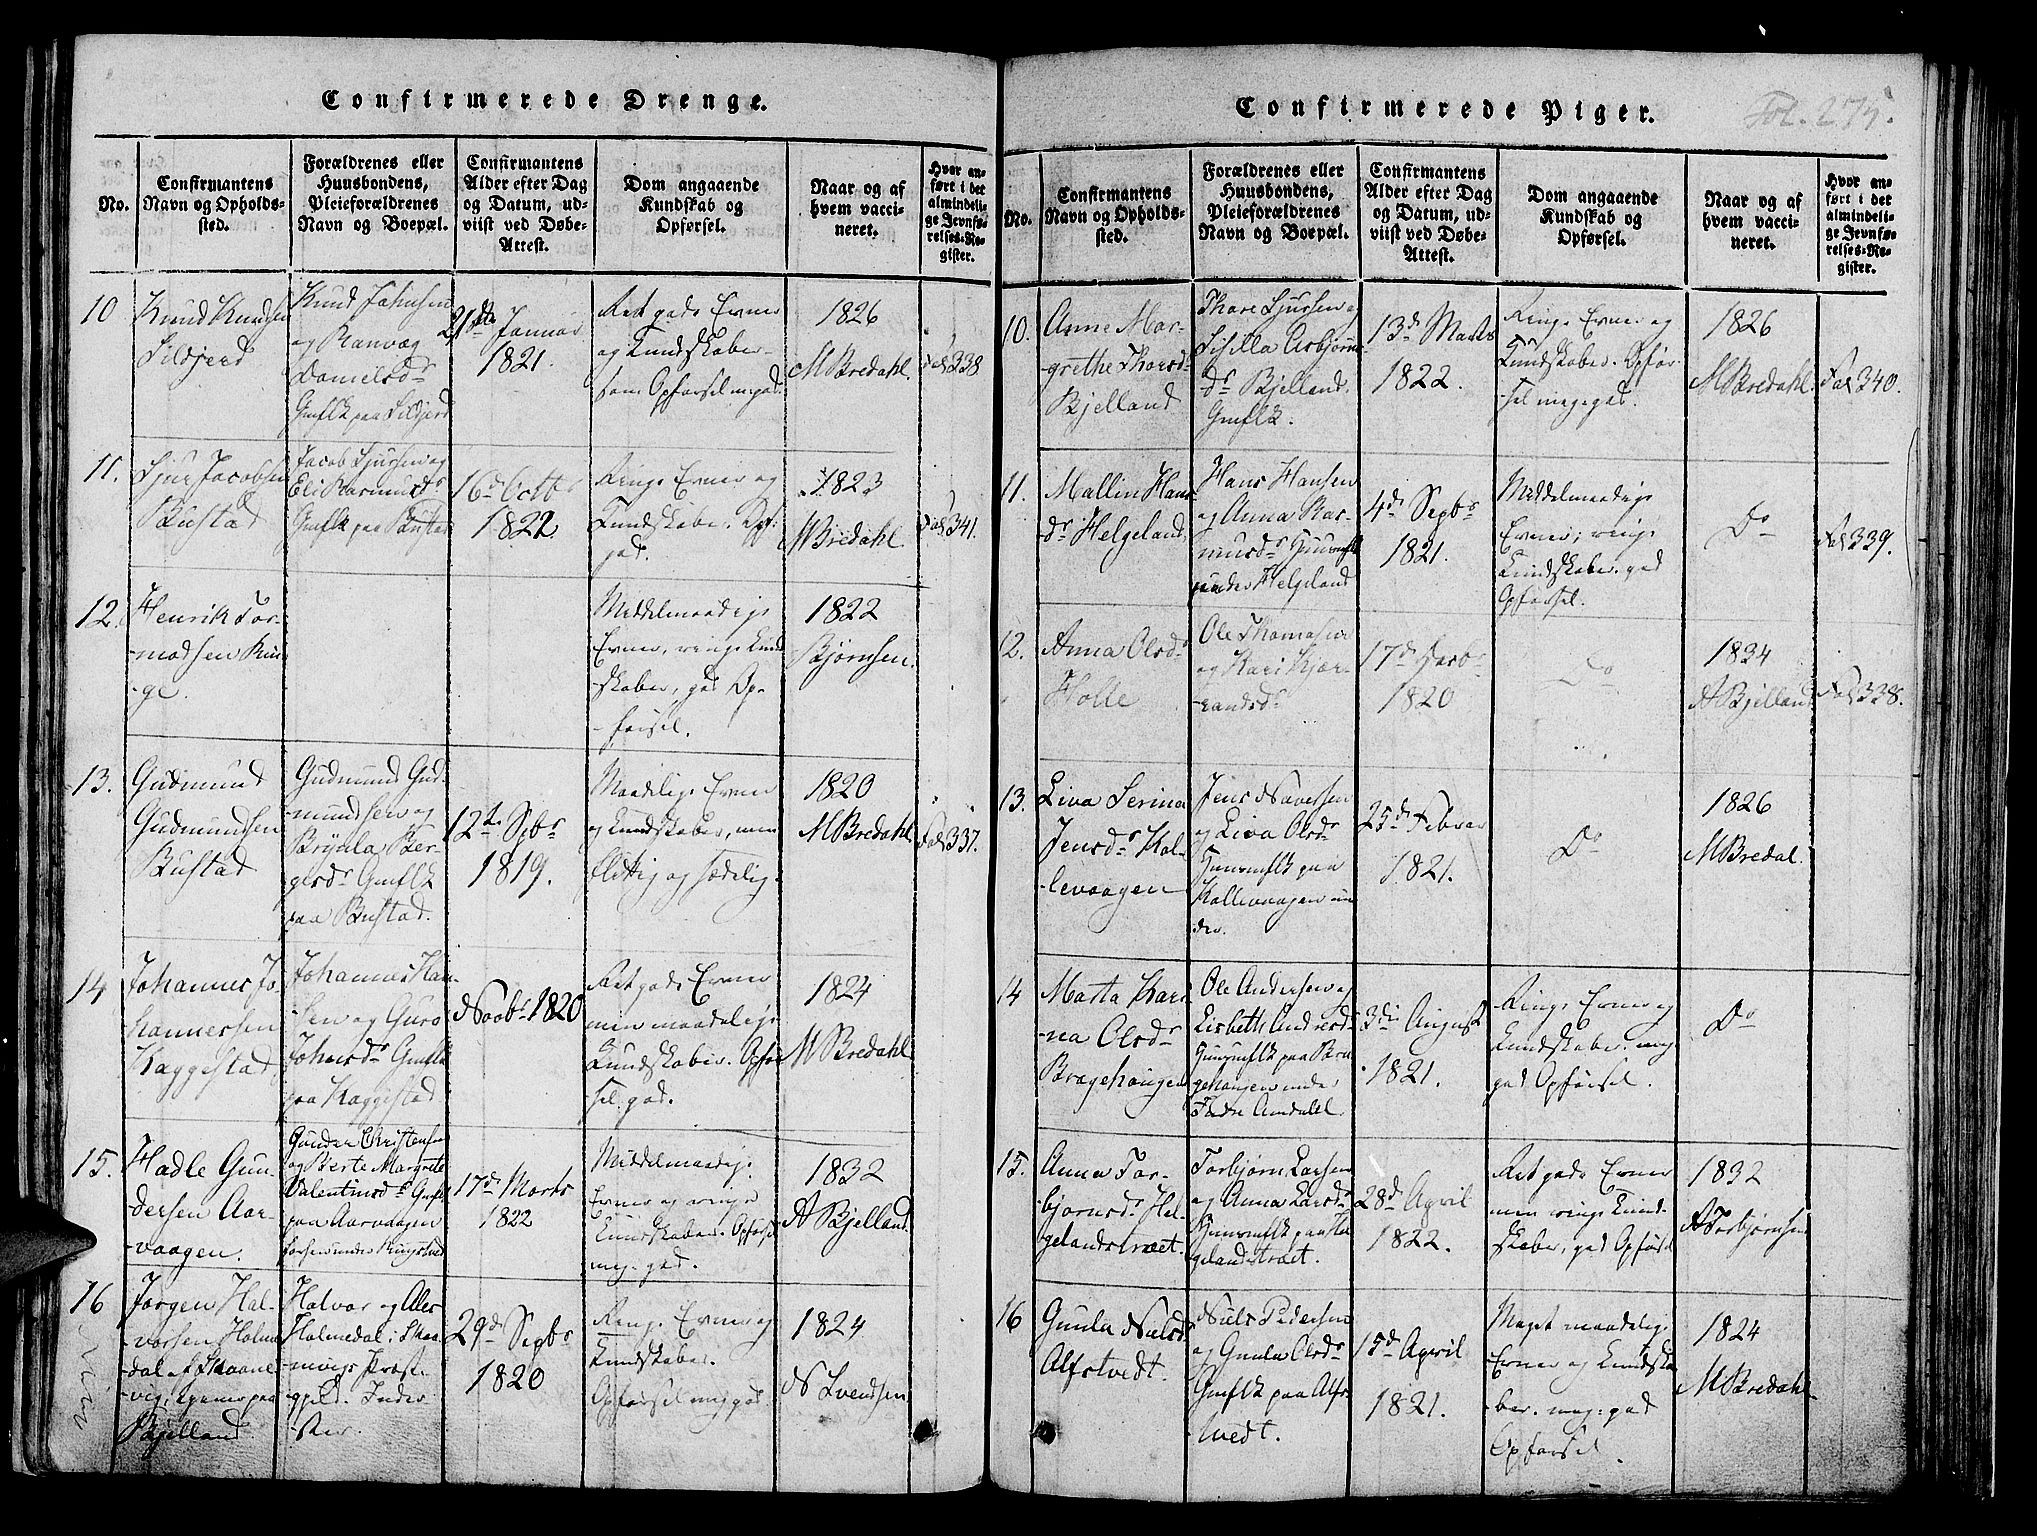 Confirmerede Drenge.
No.
Confirmantens
Navn og Opholds-
sted.
Forældrenes eller
Huusbondens,
Pleieforældrenes
Navn og Boepæl.
Confirmantens
Alder efter Dag
og Datum, ud-
viist ved Døbe-
Attest.
Dom angaaende
Kundskab og
Opførsel.
Naar og af
hvem vacci-
neret.
Hvor an-
ført i det
almindeli-
ge Jevnfø-
relses-Re-
gister.
10
Knud Knudsen
Sildjerd
Knud Johnsen
og Ranvæg
Danielsdr
Gmflk paa Sildjerd
21de Januar
1821.
Ret gode Evner
og Kundskaber
Opførsel m. god
1826
M Bredahl.
Fol 338
11.
Sjur Jacobsen
Bustad
Jacob Sjursen og
Eli Rasmusdr
Gmflk paa Bustad
16d Octbr
1822
Ringe Evner og
Kundskaber. Opf:
god.
1823
M Bredahl.
Fol 341.
12.
Henrik Tor-
modsen Rin-
ge.
Middelmaadige
Evner, ringe Kund
skaber, god Op-
førsel.
1822
Bjørnsen.
13.
Gudmund
Gudmundsen
Bustad
Gudmund Gud
mundsen og
Brynla Ber-
gesdr Gmflk
paa Bustad.
12te Spbr
1819.
Maadelige Evner
og Kundskaber, men
flittig og sædelig.
1820
M Bredahl.
Fol 337.
14
Johannes Jo-
hannessen
Kaggestad
Johannes Han-
sen og Guro
Johnsdr Gmflk
paa Kaggestad
Novbr 1820
Ret gode Evner
men maadelige
Kundskaber. Opfør
sel god.
1824
M Bredahl
15.
Hadle Gun-
dersen Aar-
vaagen.
Gunder Christensen
og Berte Margrete
Valentinsdr Gmflk
paa Aarvaagen
17d Marts
1822
Middelmaadige
Evner og ringe
Kundskaber. Opførsel
meg. god.
1832
A Bjelland.
16
Jørgen Hal-
vorsen Holme
dal af Skaane
vig, tjener paa
Bjelland
Halvor og
Holmedal i Skaa
nevigs Præste
gjeld. Inder
ster.
29d Sepbr
1820
Ringe Evner og
Kundskaber.
Opførsel meg god
1824
N Svendsen
Confirmerede Piger.
Fol. 275.
No.
Confirmantens
Navn og Opholds-
sted.
Forældrenes eller
Huusbondens,
Pleieforældrenes
Navn og Boepæl.
Confirmantens
Alder efter Dag
og Datum, ud-
viist ved Døbe-
Attest.
Dom angaaende
Kundskab og
Opførsel.
Naar og af
hvem vacci-
neret.
Hvor an-
ført i det
almindeli-
ge Jevnfø-
relses-Re-
gister.
10.
Anne Mar-
grethe Thorsdr
Bjelland
Thore Sjursen og
Sisilla Asbjørns
dr Bjelland.
Gmflk.
13d Marts
1822.
Ringe Evner og
Kundskaber. Opfør
sel meg. god.
1826
M Bredahl.
Fol 340.
11.
Mallin Hans
dr Helgeland
Hans Hansen
og Anna Ras-
musdr Huusmflk
under Helgeland
4d Sepbr
1821.
Middelmaadige
Evner, ringe
Kundskaber. god
Opførsel.
Do
Fol 339.
12.
Anna Olsdr
Holle
Ole Thomasen
og Kari Kjør-
randsdr
17d
1820
Do
1834
A Bjelland
Fol 338.
13.
Liva Serina
Jensdr Kol-
levaagen
Jens
og Liva Olsdr
Huusmflk paa
Kollevaagen un
der.
25d Februar
1821.
Do
1826
M Bredal.
14
Marta Kari
na Olsdr
Brogehougen
Ole Andersen og
Lisbeth Andresdr
Huusmflk paa Bro
gehougen under
Indre Amdahl.
3die August
1821.
Ringe Evner og
Kundskaber. meg
god Opførsel.
Do
15.
Anna Tor-
bjørnsdr Hel-
gelandstræet.
Torbjørn Larsen
og Anna Larsdr
Huusmflk paa Hel
gelandstræet.
28d April
1822.
Ret gode Evner
men ringe Kund-
skaber, god Opførsel
1832
A Torbjørnsen
16
Gunla Nielsdr
Alfstvedt.
Niels Pedersen
og Gunla Olsdr
Gmflk paa Alfs
tvedt.
15d April
1821.
Meget maadelige
Evner og Kundska
ber. meg: god
Opførsel.
1824
M Bredahl